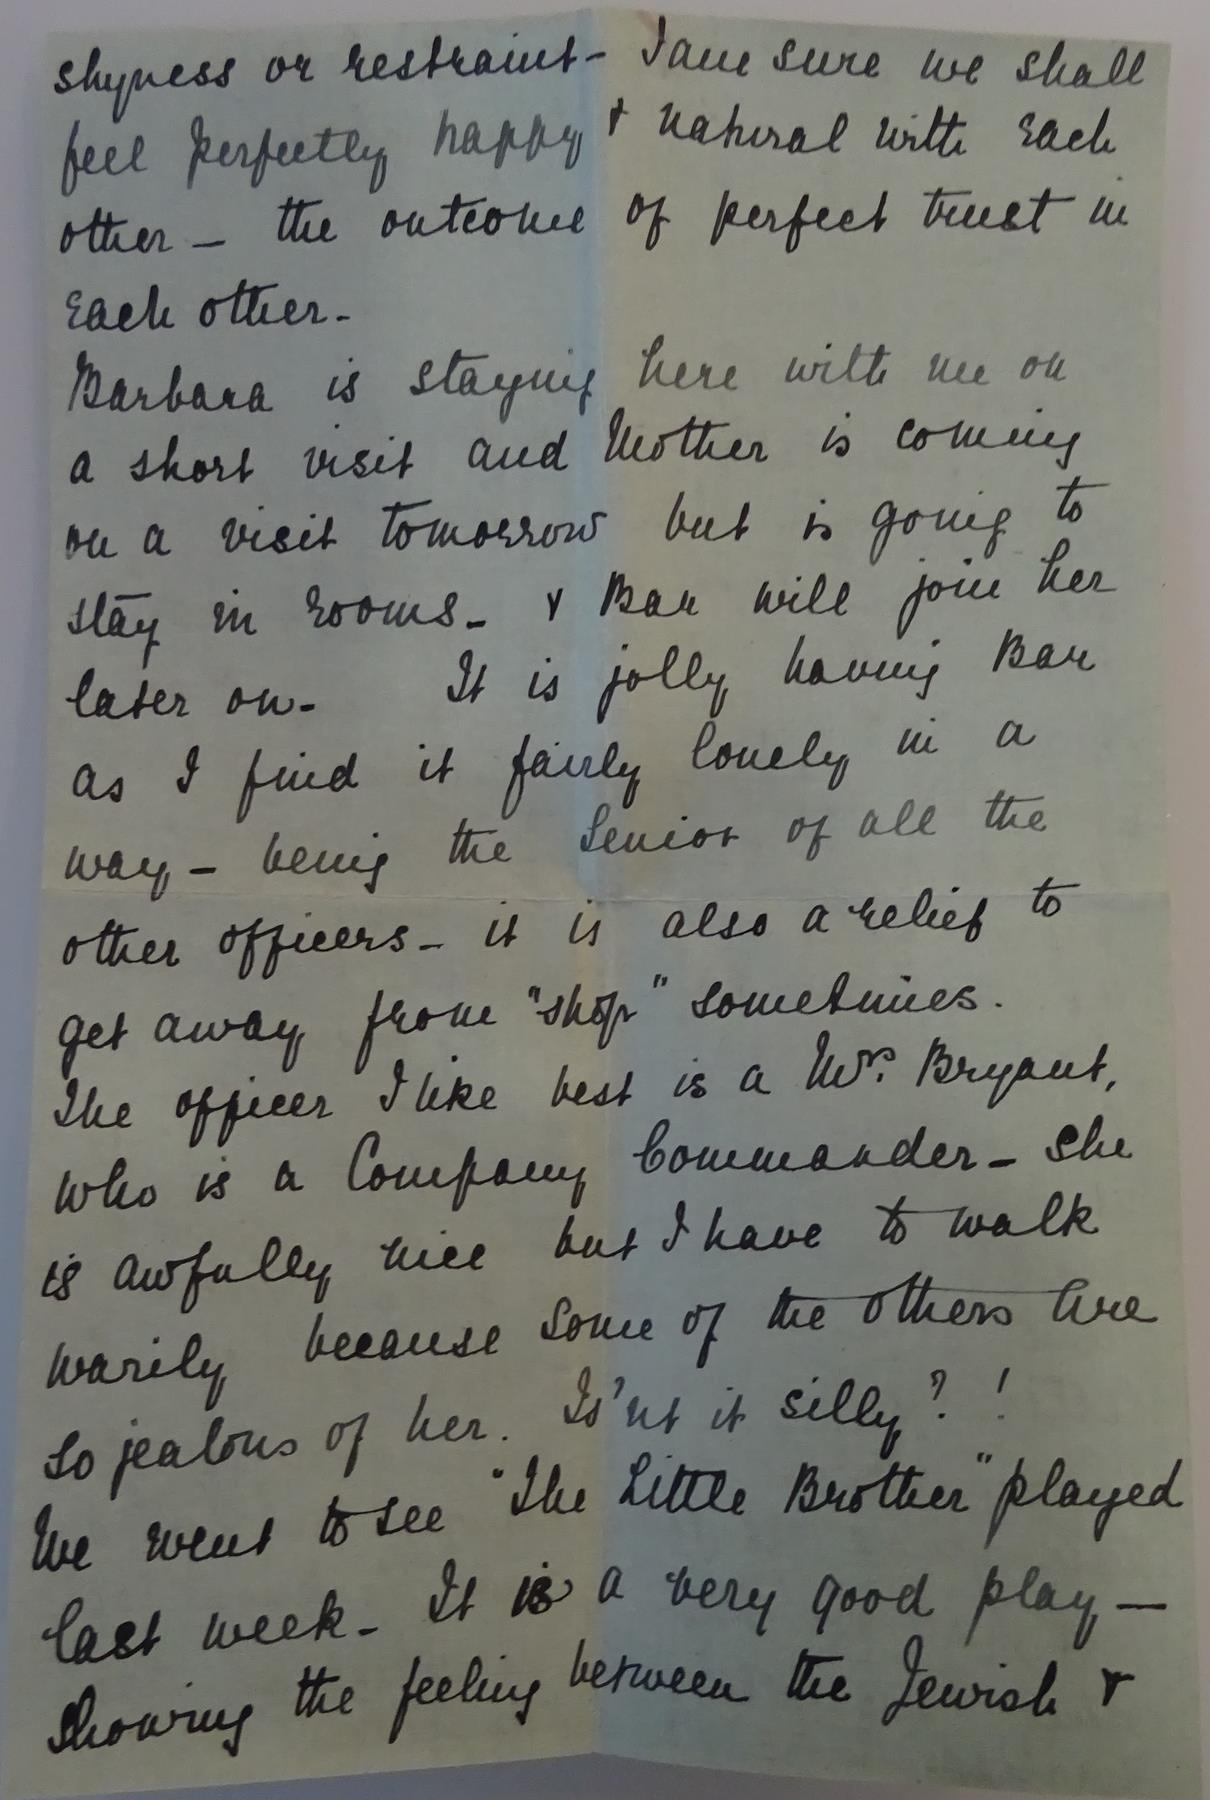 shyness or restraint - I am sure we shall
feel perfectly happy & natural with each
other - the outcome of perfect trust in
each other -
Barbara is staying here with me on
a short visit and Mother is coming
on a visit tomorrow but is going to
stay in rooms - & Bar will join her
later on - It is jolly having Bar
as I find it fairly lonely in a
way - being the senior of all the
other officers - it is also a relief to
get away from "shop" sometimes.
The officer I like best is a Mrs. Bryant,
who is a Company Commander - she
is awfully nice but I have to walk
warily because some of the others are
so jealous of her. Is'nt it silly?!
We went to see "The Little Brother" played
last week - It is a very good play -
showing the feeling between the Jewish &